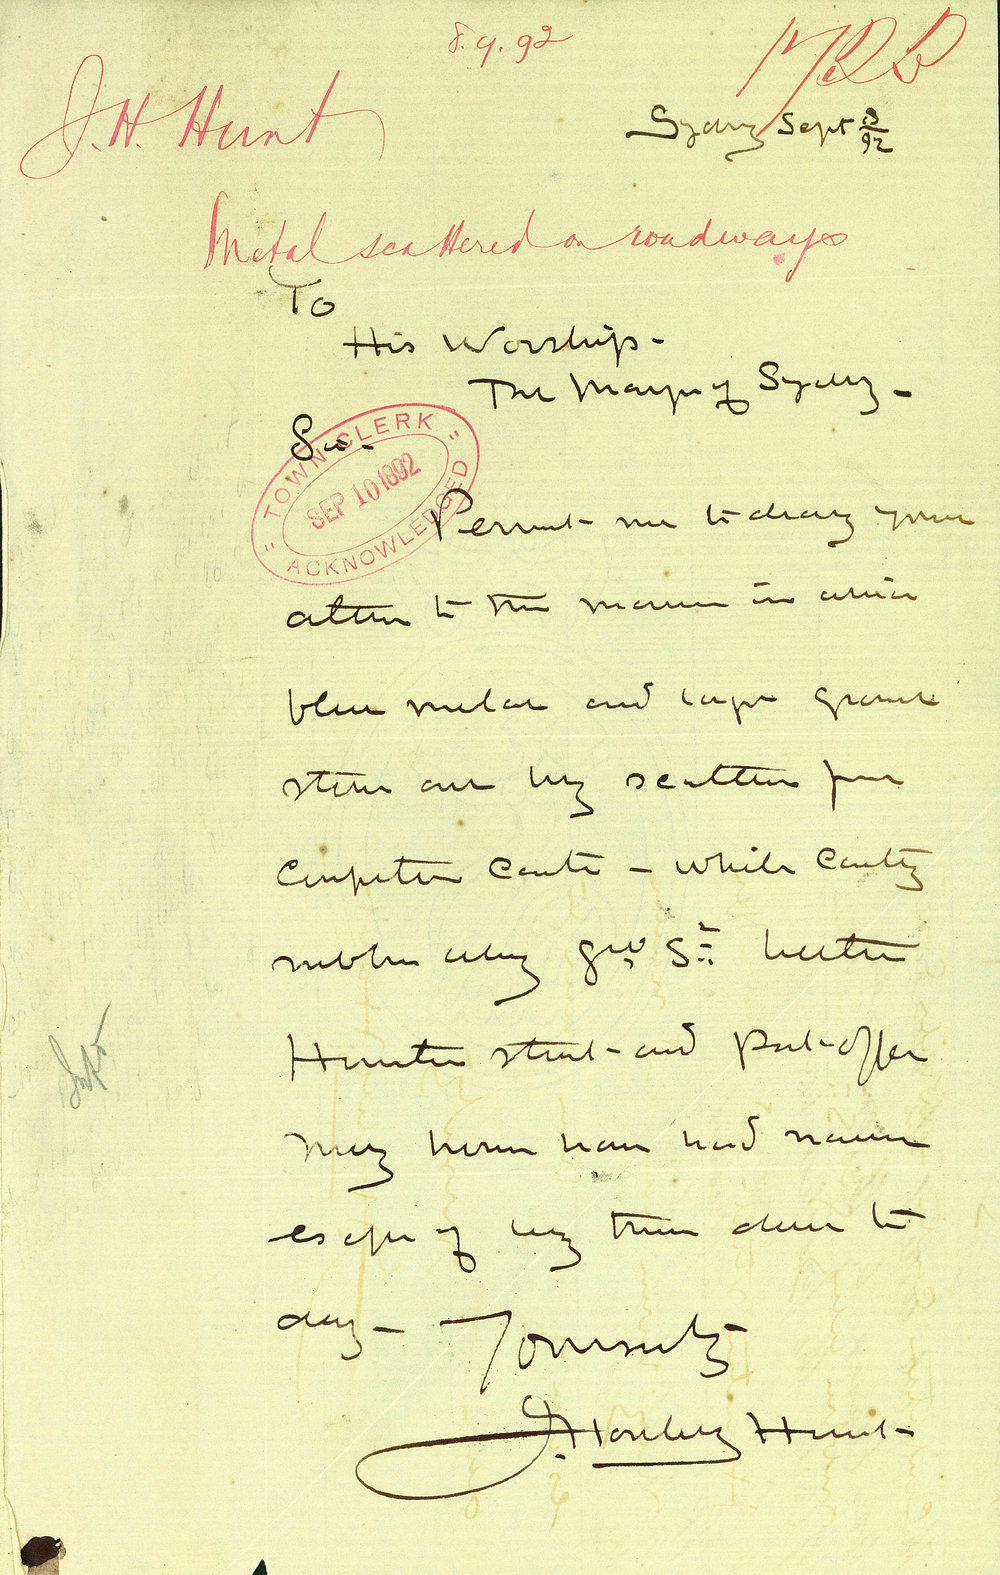 8.9.92
J.H. Hunt
Sydney Sept 8/92
Metal scattered on roadways
To
His Worship -
The Mayor of Sydney -
Sir -
TOWN CLERK
SEP 10 1892
ACKNOWLEDGED
Permit me to draw your
to the manner in which
blue metal and large granite
stone are being scattered from
Carts - while Carting
rubble along Geo. St.
Hunter street and Post-office
My horse had narrow
escape of being thrown down to
day - Yours truly
J. Horbury Hunt -